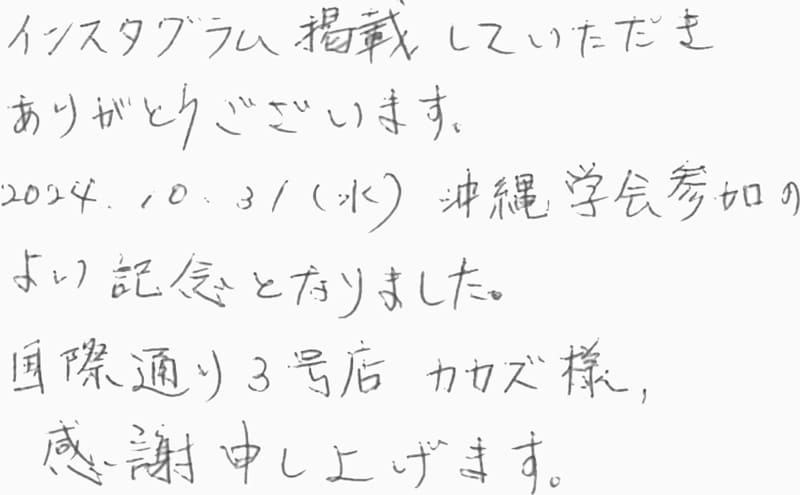 インスタグラム掲載していただき
ありがとうございます。
2024.10.31(水)沖縄学会参加の
よい記念となりました。
国際通り3号店 カカズ様,
感謝申し上げます。